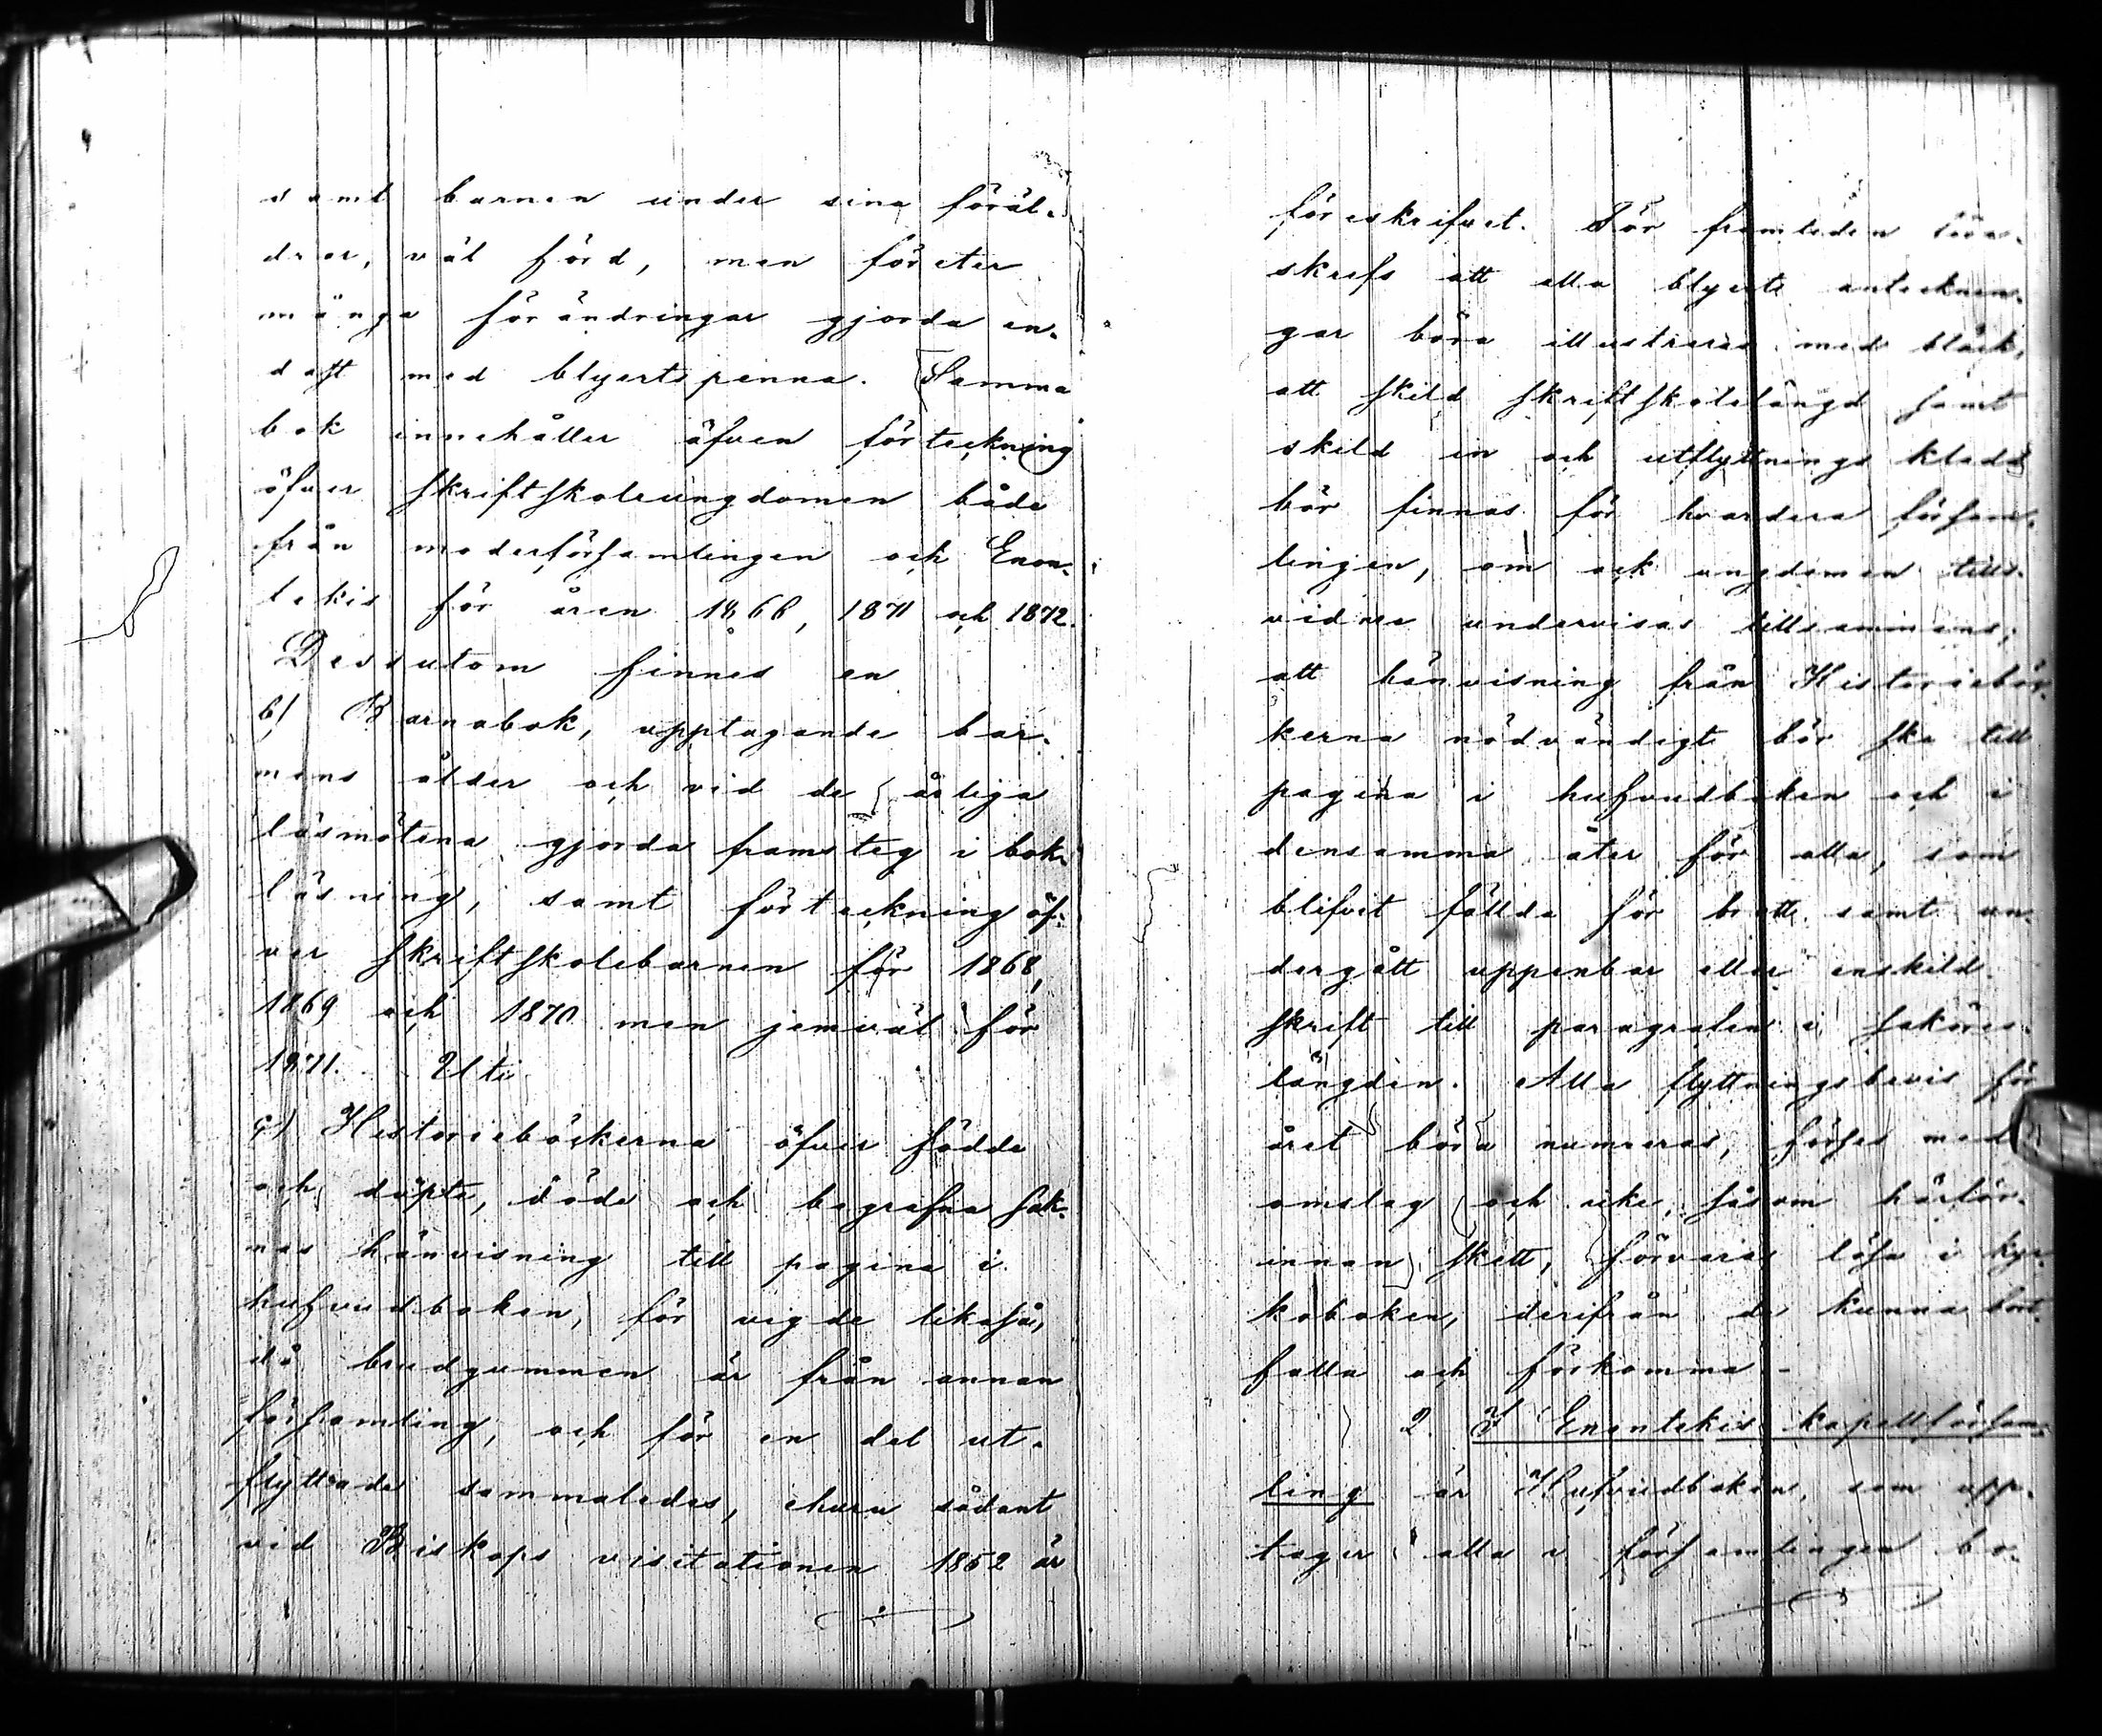 samt barnen under sina föräl-
drar, väl förd, men företer
många förändringar gjorda en-
dast med blyertspenna. Samma
bok innehåller äfven förteckning
öfver skriftskoleungdomen både
från moderförsamlingen och Enon-
tekis för åren 1866, 1871 och 1872.
Dessutom finnes en
b) Barnabok, upptagande bar-
nens ålder och vid de årliga
läsmötena gjorda framsteg i bok-
läsning, samt förteckning öf-
ver skriftskolebarnen för 1868,
1869 och 1870 men jemväl för
1871. Uti
c) Historieböckerna öfver födde
och döpte, döde och begrafna sak-
nas hänvisning till pagina i
hufvudboken, för vigde likaså,
då brudgummen är från annan
församling, och för en del ut-
flyttade sammaledes, ehuru sådant
vid Biskops visitationen 1852 är
föreskrifvet. För framtiden före-
skrefs att alla blyerts antecknin-
gar böra illustreras med bläck,
att skild skriftskolelängd samt
skild in och utflyttnings kladd
bör finnas för hvardera försam-
lingen, om ock ungdomen tills-
vidare undervisas tillsammans;
att hänvisning från Historiebök-
kerna nödvändigt bör ske till
pagina i hufvudboken och i
densamma åter för alla, som
blifvit fällda för brott samt un-
dergått uppenbar eller enskild
skrift till paragrafen i saköres-
längden. Alla flyttningsbevis för
året böra numreras, förses med
omslag och icke, såsom härför-
innan skett, förvaras lösa i kyr-
koboken, derifrån de kunna bort-
falla och förkomma -
2. I Enontekis kapellförsam-
ling är Hufvudboken, som upp-
tager alla i församlingen bo-